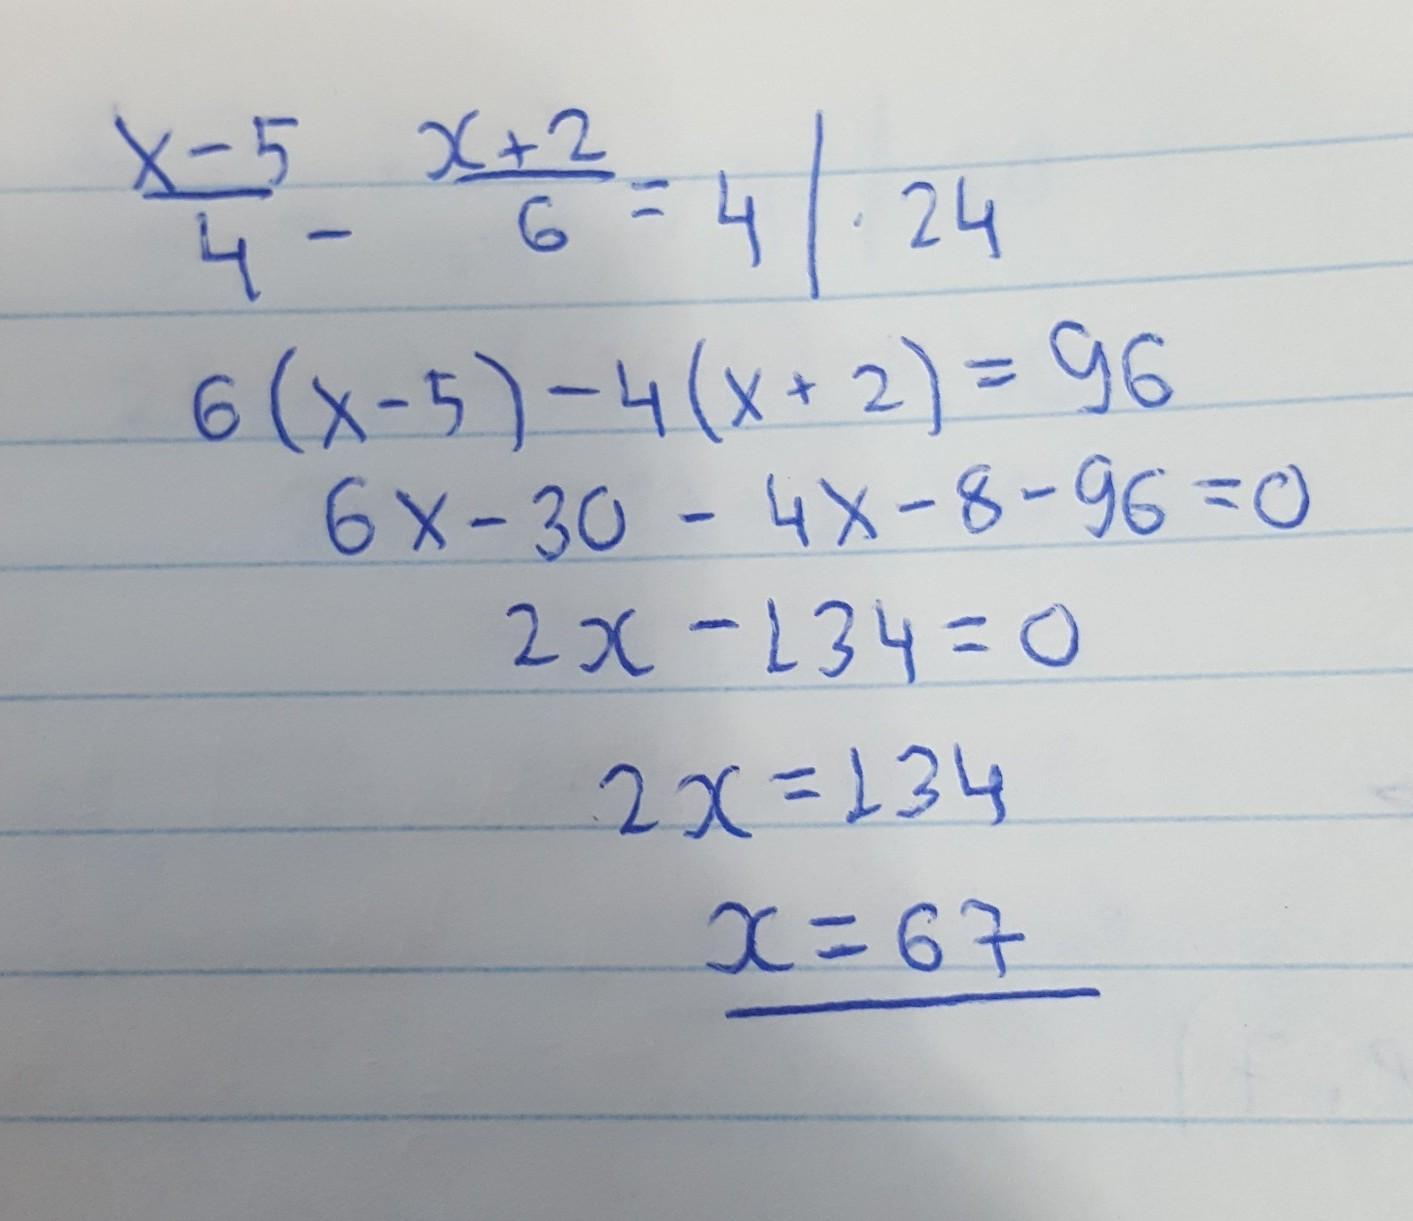 (x-5)/4 - (x+2)/6 = 4 | · 24
6(x-5)-4(x+2)=96
6x-30 - 4x-8-96=0
2x -134=0
2x=134
x=67